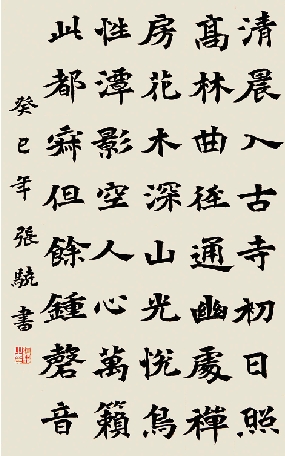 清晨入古寺初日照
髙林曲徑通幽處禪
房花木深山光悅鳥
性潭影空人心萬籟
此都寂但餘鍾磬音
癸巳年張書